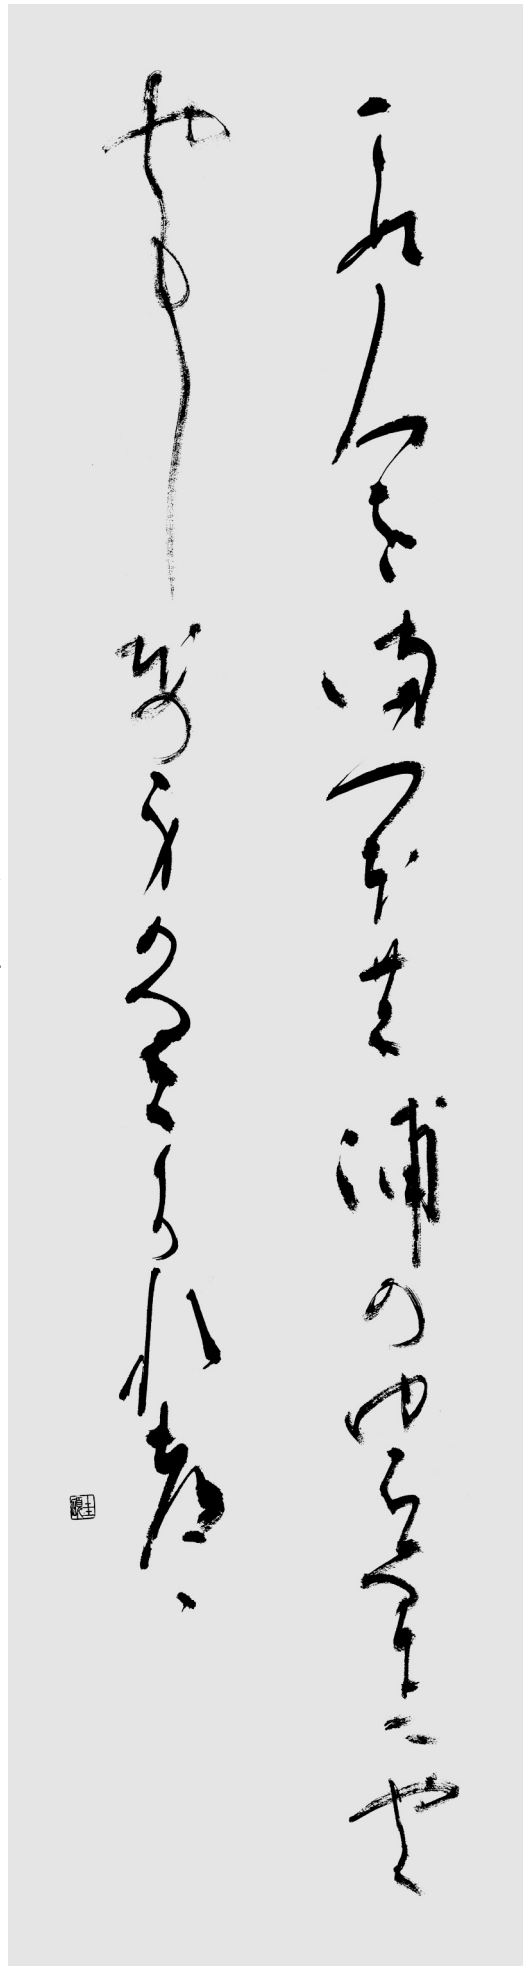 こぬ人をまつほの浦のゆふなきにやく
やもしほの身もこかれつゝ